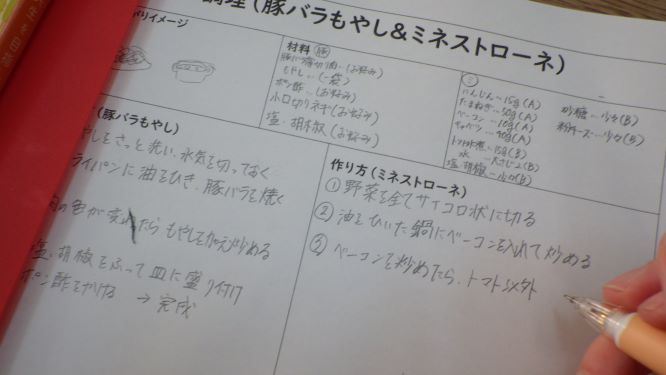 調理（豚バラもやし&ミネストローネ）
りイメージ
材料 豚
豚バラ薄切り肉…（お好み）
もやし…（一袋）
ポン酢…（お好み）
小口切りネギ（お好み）
塩・胡椒（お好み）
ミ
にんじん…15g(A)
たまねぎ…30g(A)
ベーコン…10g(A)
キャベツ…20g(A)
水…大さじ(B)
塩胡椒…少々(B)
砂糖…少々(B)
粉チーズ…少々(B)
（豚バラもやし）
やしをさっと洗い、水気を切っておく
ライパンに油をひき、豚バラを焼く
の色が変わったら もやしを加え炒める
塩、胡椒をふって皿に盛り付け
ポン酢をかける → 完成
作り方（ミネストローネ）
① 野菜を全てサイコロ状に切る
② 油をひいた鍋にベーコンを入れて炒める
③ ベーコンを炒めたら、トマト以外